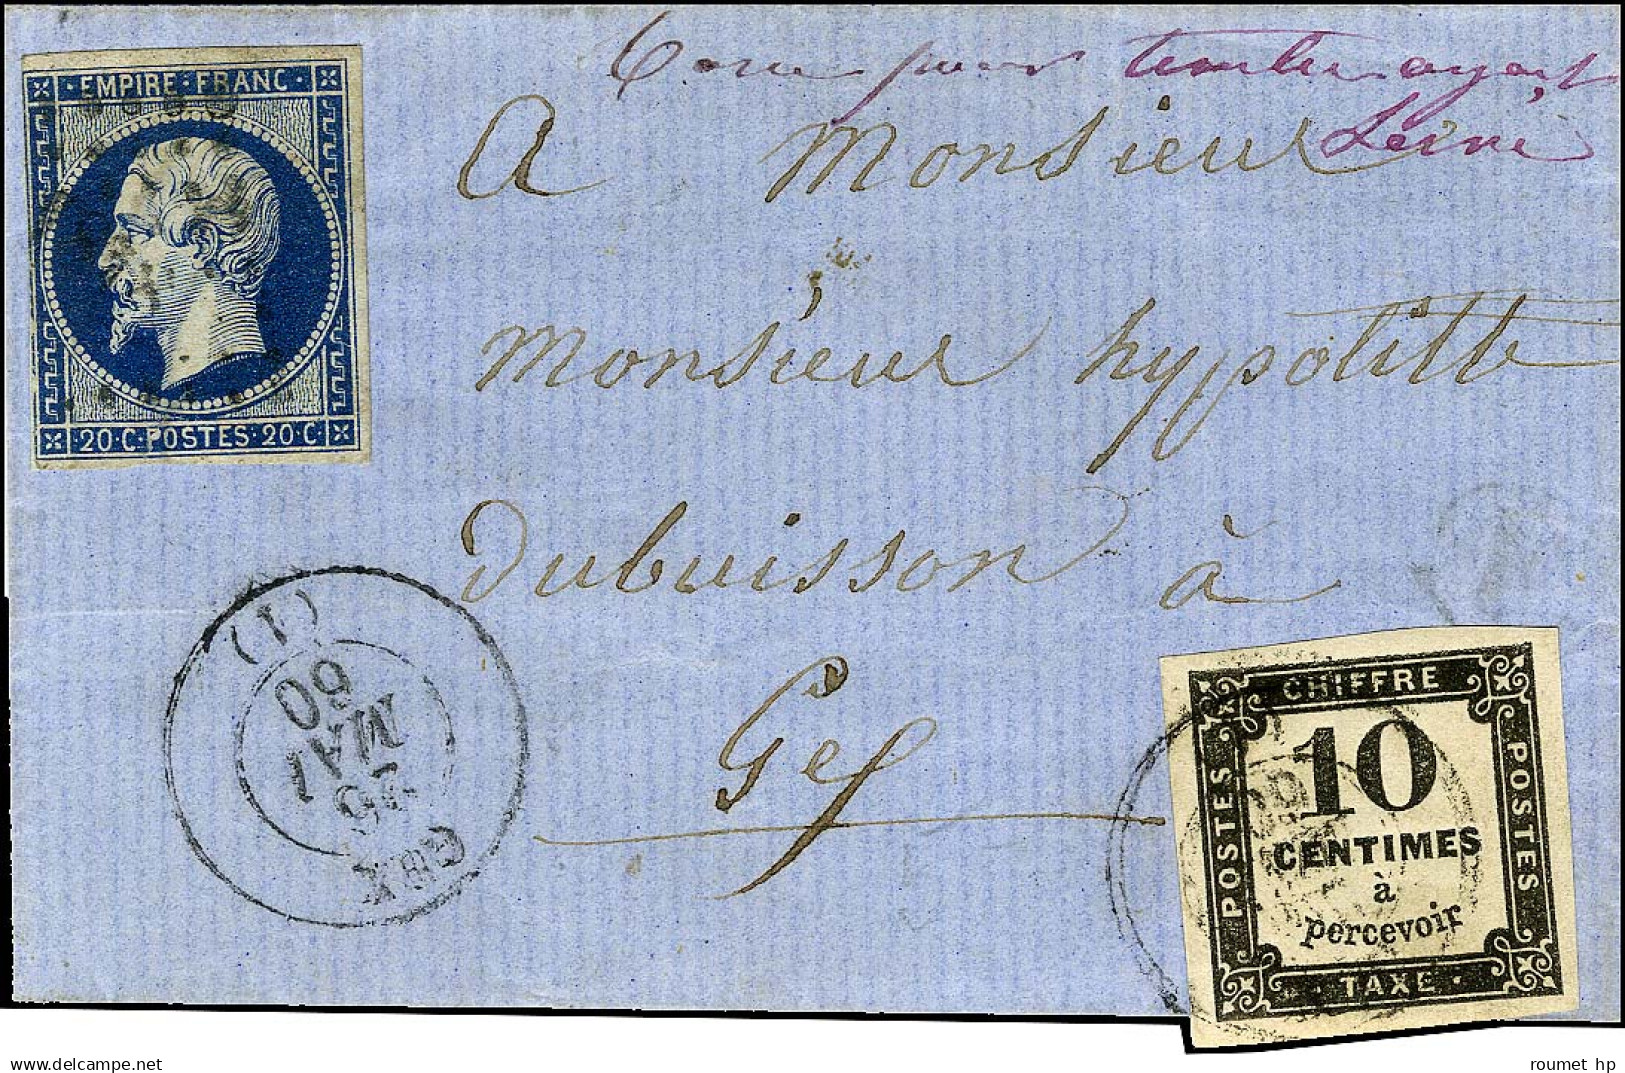 Taxe pour timbre ayant
servi
EMPIRE · FRANC ·
20 · C · POSTES · 20 · C ·
A Monsieur
Monsieur hypolitte
Dubuisson à
Gex
(1)
60
MAI
26
GEX
CHIFFRE
POSTES
10
CENTIMES
à
percevoir
POSTES
· TAXE ·
delcampe.net
roumet hp